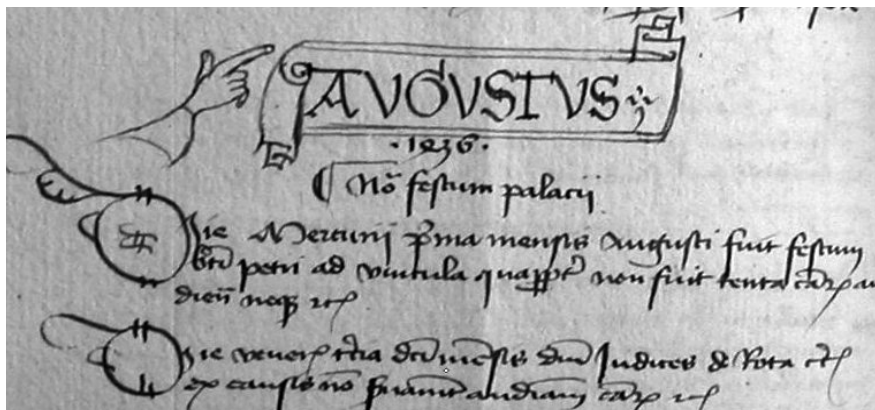 AVGVSTVS
·1436·
Nō festum palacii
Die Mercurii p̄ma mensis Augusti fuit festum
bti petri ad vincula quapp̄t non fuit tenta
dieñ neq etc
Die vener tcia dci mēsis dn̄i Judices de Rota etc
ex causis nō audiam etc